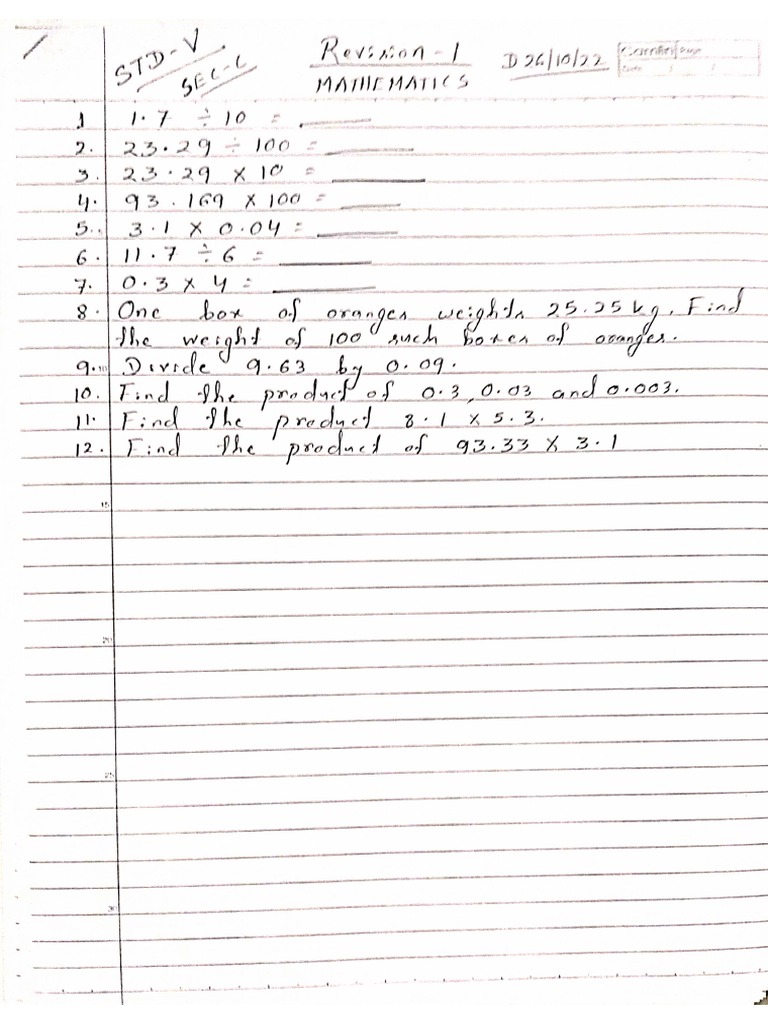 STD-V
SEC-C
Revision-1
D 26/10/22
MATHEMATICS
1 1.7 ÷ 10 = ______
2. 23.29 ÷ 100 = ______
3. 23.29 X 10 = ______
4. 93.169 X 100 = ______
5. 3.1 X 0.04 = ______
6. 11.7 ÷ 6 = ______
7. 0.3 X 4 = ______
8. One box of oranges weights 25.25 kg. Find
the weight of 100 such boxes of oranges.
9. Divide 9.63 by 0.09.
10. Find the product of 0.3, 0.03 and 0.003.
11. Find the product 8.1 X 5.3.
12. Find the product of 93.33 X 3.1
15
20
25
30